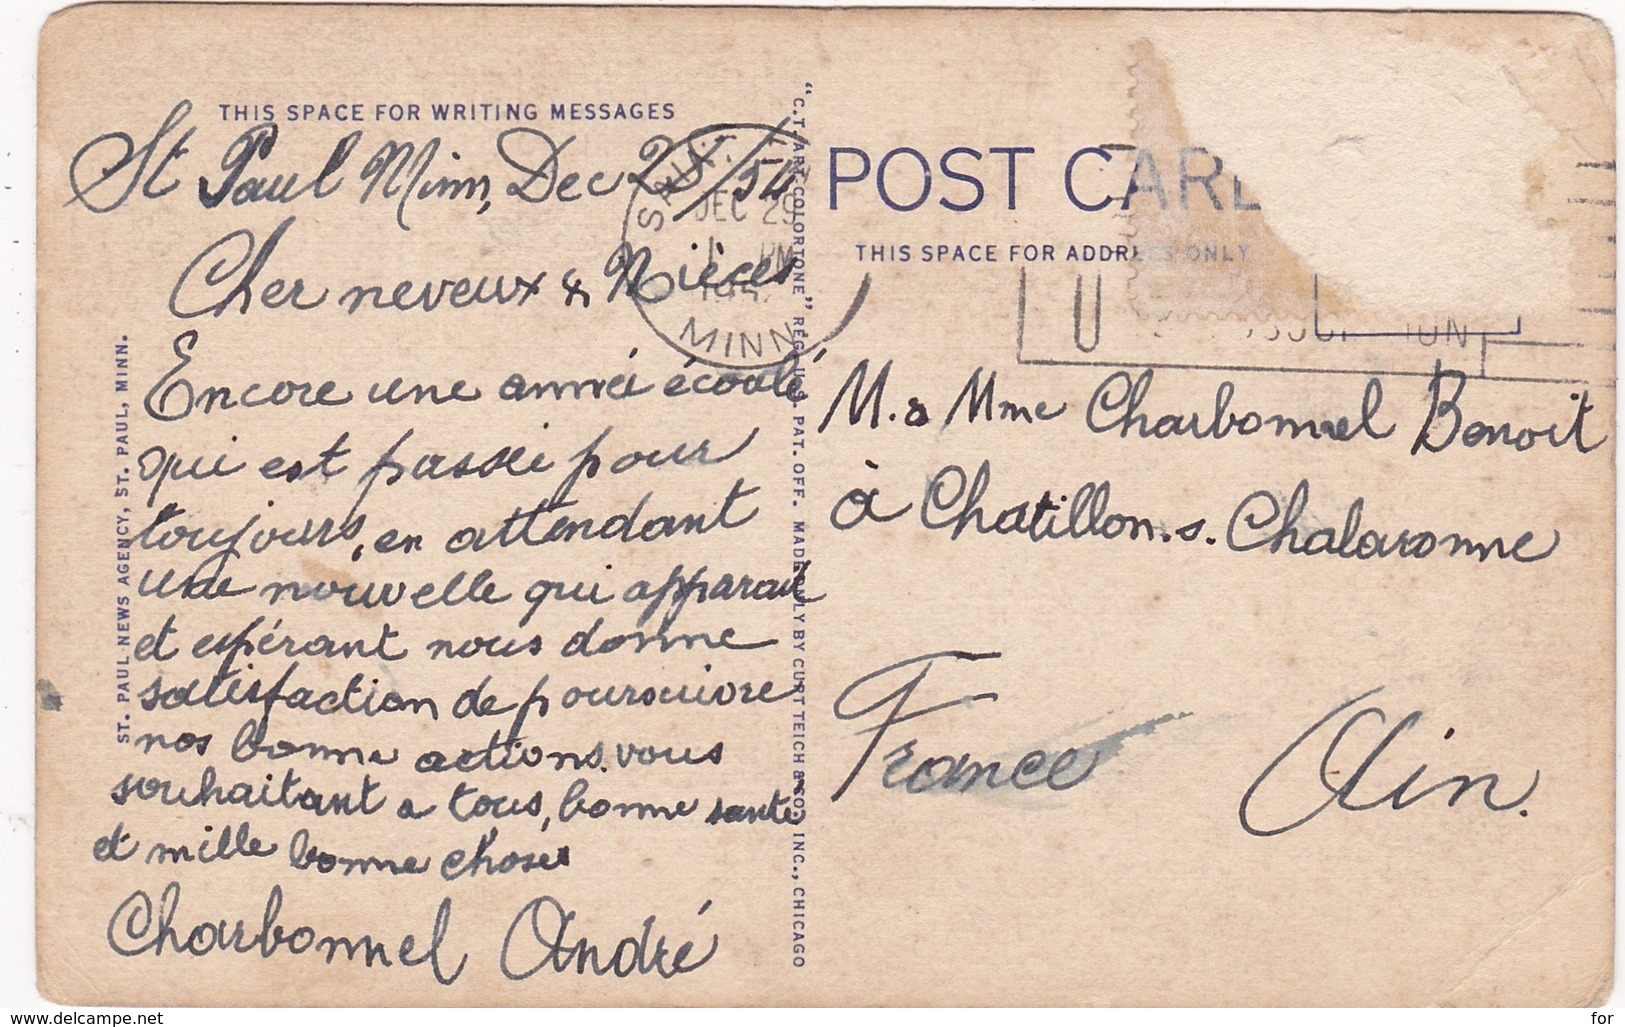 THIS SPACE FOR WRITING MESSAGES
St Paul Minn, Dec 28/54
Cher neveux & Nièces
Encore une année écoulé
qui est passée pour
toujours, en attendant
une nouvelle qui apparait
et espérant nous donne
satisfaction de poursuivre
nos bonne actions. vous
souhaitant a tous, bonne santé
et mille bonne choses
Charbonnel André
ST. PAUL NEWS AGENCY, ST. PAUL, MINN.
"C.T. ART COLORTONE" REG. U.S. PAT. OFF. MADE ONLY BY CURT TEICH & CO., INC., CHICAGO
SAINT
DEC 29
1 PM
195
MINN
POST CARD
THIS SPACE FOR ADDRESS ONLY
M. & Mme Charbonnel Benoit
à Chatillon. s. Chalaronne
France Ain.
www.delcampe.net
for